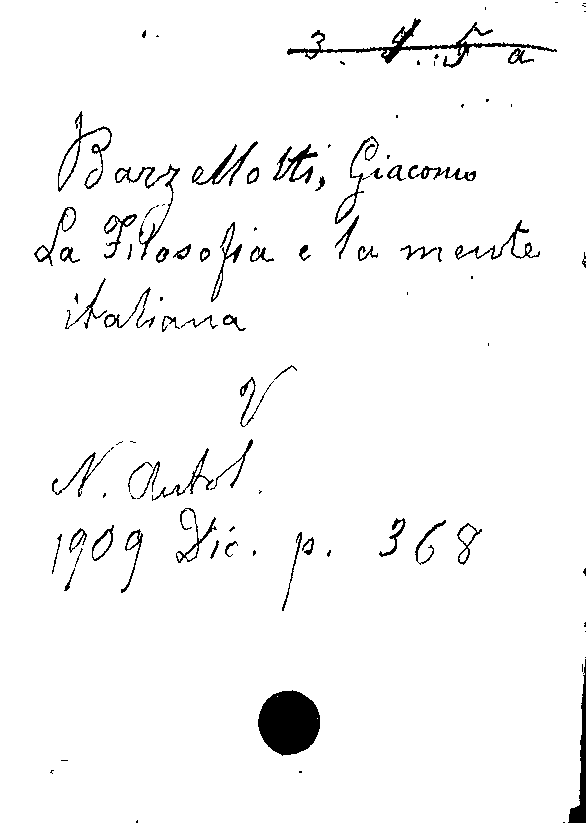 Barzellotti, Giacomo
La Filosofia e la mente
italiana
V
N. Antol.
1909 Dic. p. 368